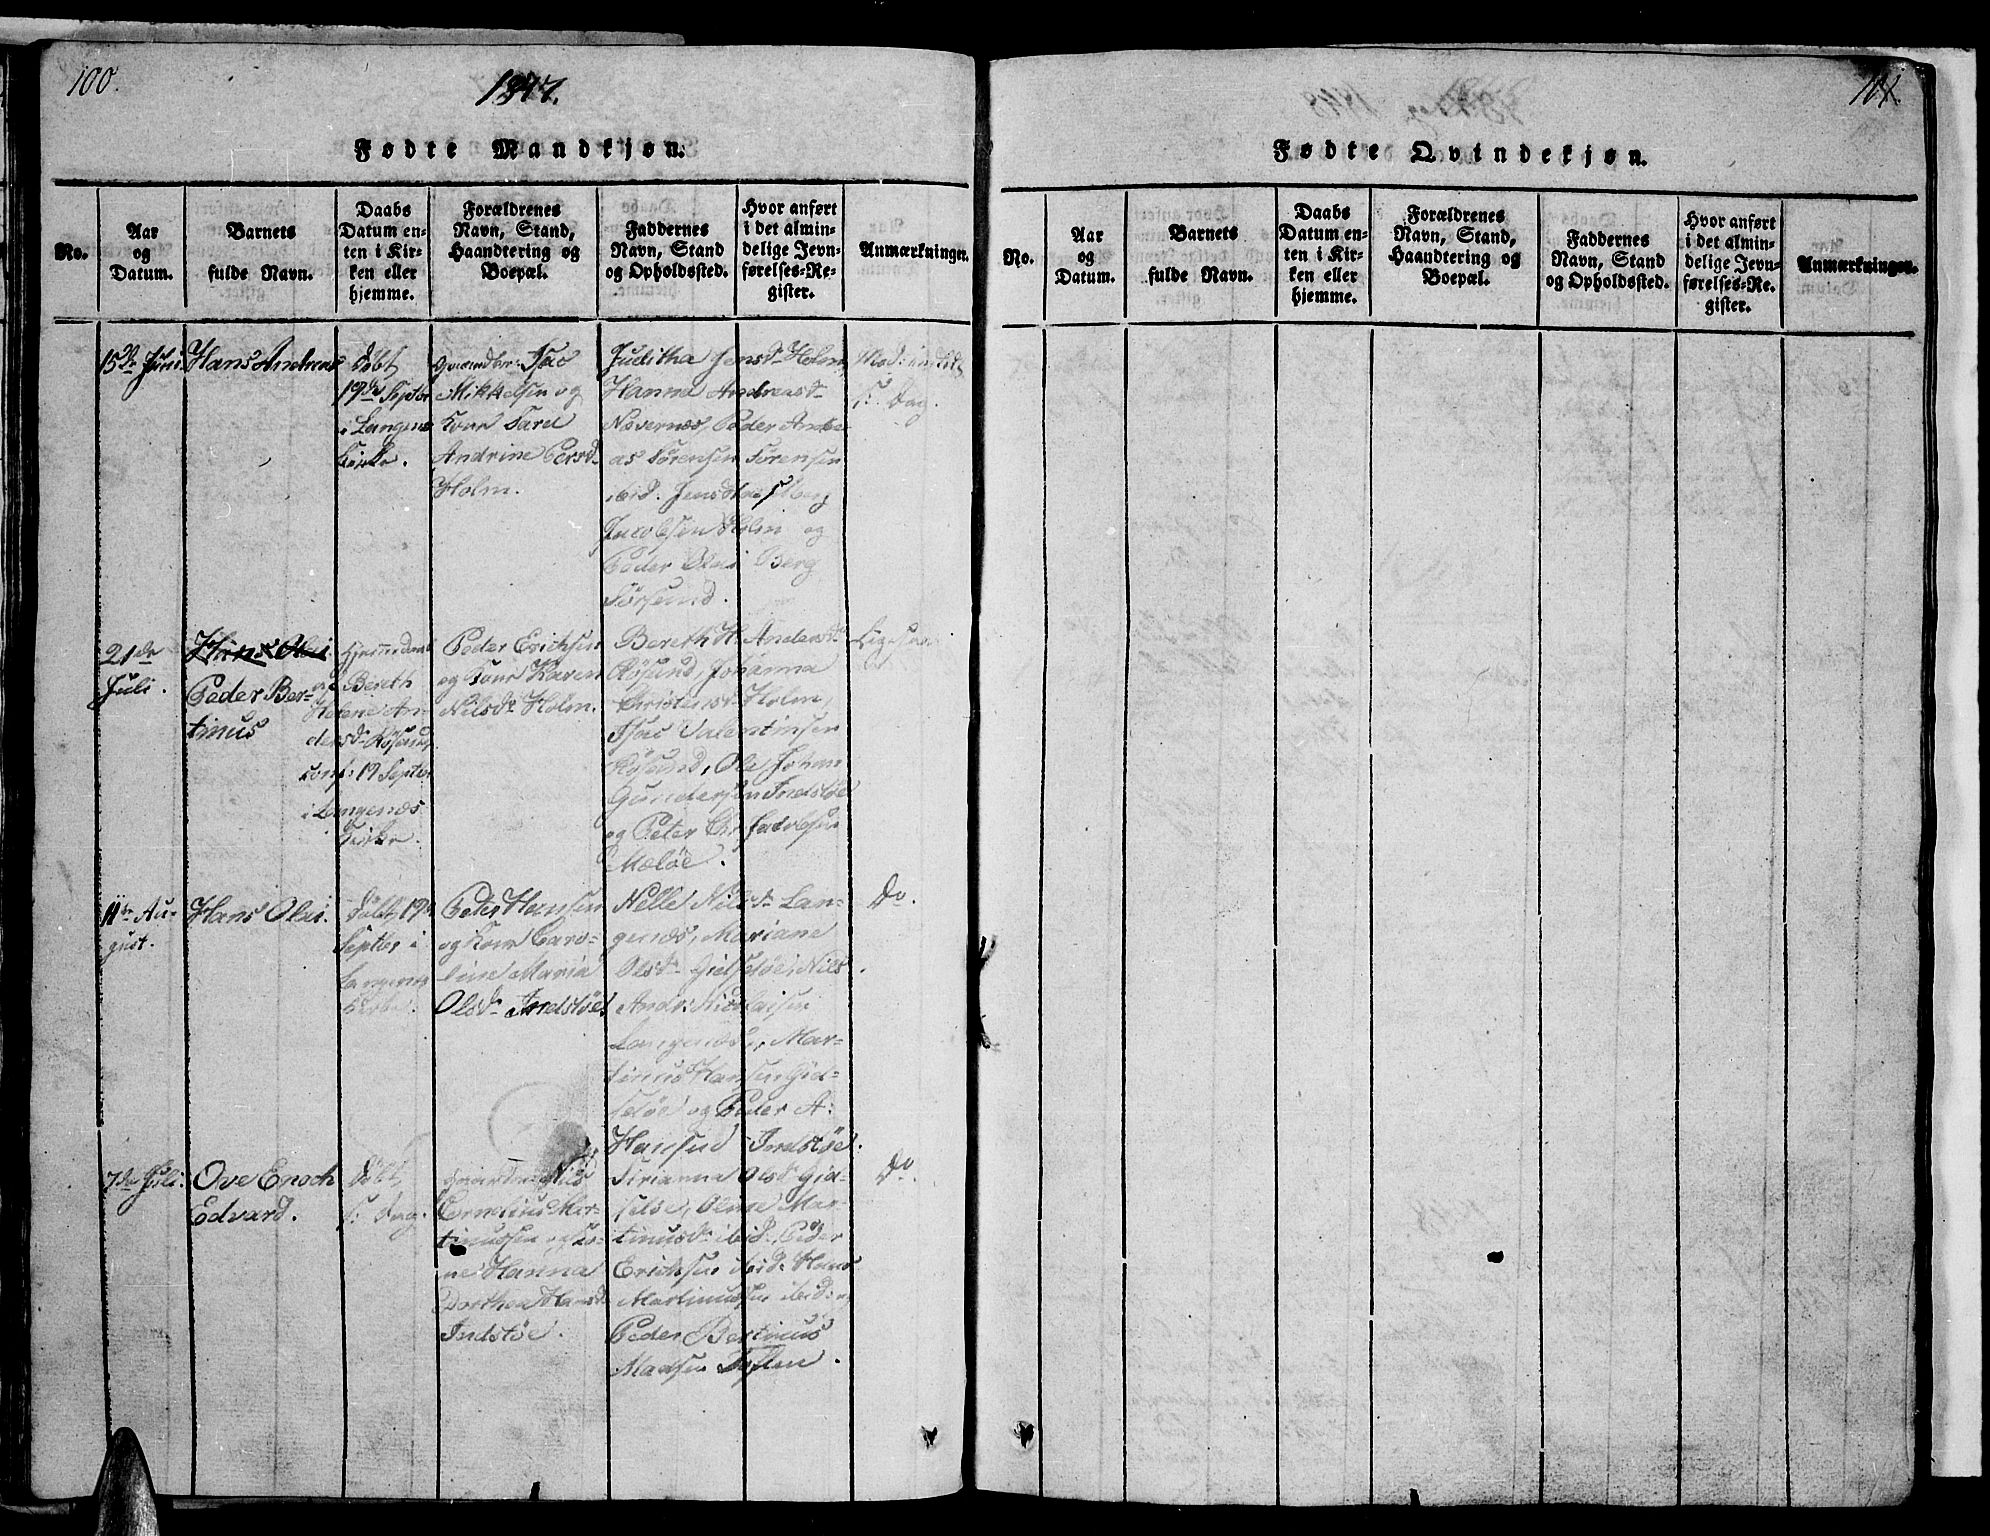 100.
1847.
Fødte Mandkjøn.
No.
Aar
og
Datum.
Barnets
fulde Navn.
Daabs
Datum en-
ten i Kir-
ken eller
hjemme.
Forældrenes
Navn, Stand,
Haandtering og
Boepæl.
Faddernes
Navn, Stand
og Opholdssted.
Hvor anført
i det almin-
delige Jevn-
førelses-Re-
gister.
Anmærkninger.
15de Juni
Hans Andreas
Døbt
19de Septbr
i Langenes
Kirke.
Isac
Mikkelsen og
Kone Tarel
Andrine Persd.
Holm.
Julitha Jensd. Holm,
Hanna Andreasd.
Peder Andre-
as Sørensen Sørensen
ibid. Jens
Jacobsen Holm og
Peder Olai Berg
Tørsund.
s: Dag.
21de
Juli.
Hans Olai
Peder Ber-
tinus
Hjemmedøbt
af Bereth
Helene An-
dersd.
conf: 19 Septbr
i Langenæs
Kirke.
Peter Erichsen
og Kone Karen
Nilsd. Holm.
Bereth H. Andersd.
Johanna
Christensd. Holm,
Isac Valentinsen
Ole Johan
Gundersen Indstøe
og Peter Chr. Jacobsen
Meløe.
11te Au-
gust.
Hans Olai.
Døbt 19de
Septbr. i
Langenæs
Kirke.
Peter Hansen
og Kone Caro-
line Maria
Olsd. Indstøe.
Nelle Nilsd. Lan-
genæs, Mariane
Olsd. Gielsetøe, Nils
Andr: Nicolaisen
Langenæs, Mar-
tinus Hansen Gid-
setøe og Peder A:
Hansen Indstøe.
Do.
7de Juli.
Ove Enoch
Edvard.
Døbt
s: Dag.
Nils
Cornelius Mar-
tinussen og Ko-
ne Hanna
Dorthea Hansd.
Indstøe.
Sirianna Olsd. Gid-
setøe, Oline Mar-
tinusd. ibid., Peder
Erichsen ibid. Hans
Martinussen ibid: og
Peder Bertinus
Madsen Toften.
Do.
101.
Fødte Qvindekjøn.
No.
Aar
og
Datum.
Barnets
fulde Navn.
Daabs
Datum en-
ten i Kir-
ken eller
hjemme.
Forældrenes
Navn, Stand,
Haandtering og
Boepæl.
Faddernes
Navn, Stand
og Opholdssted.
Hvor anført
i det almin-
delige Jevn-
førelses-Re-
gister.
Anmærkninger.